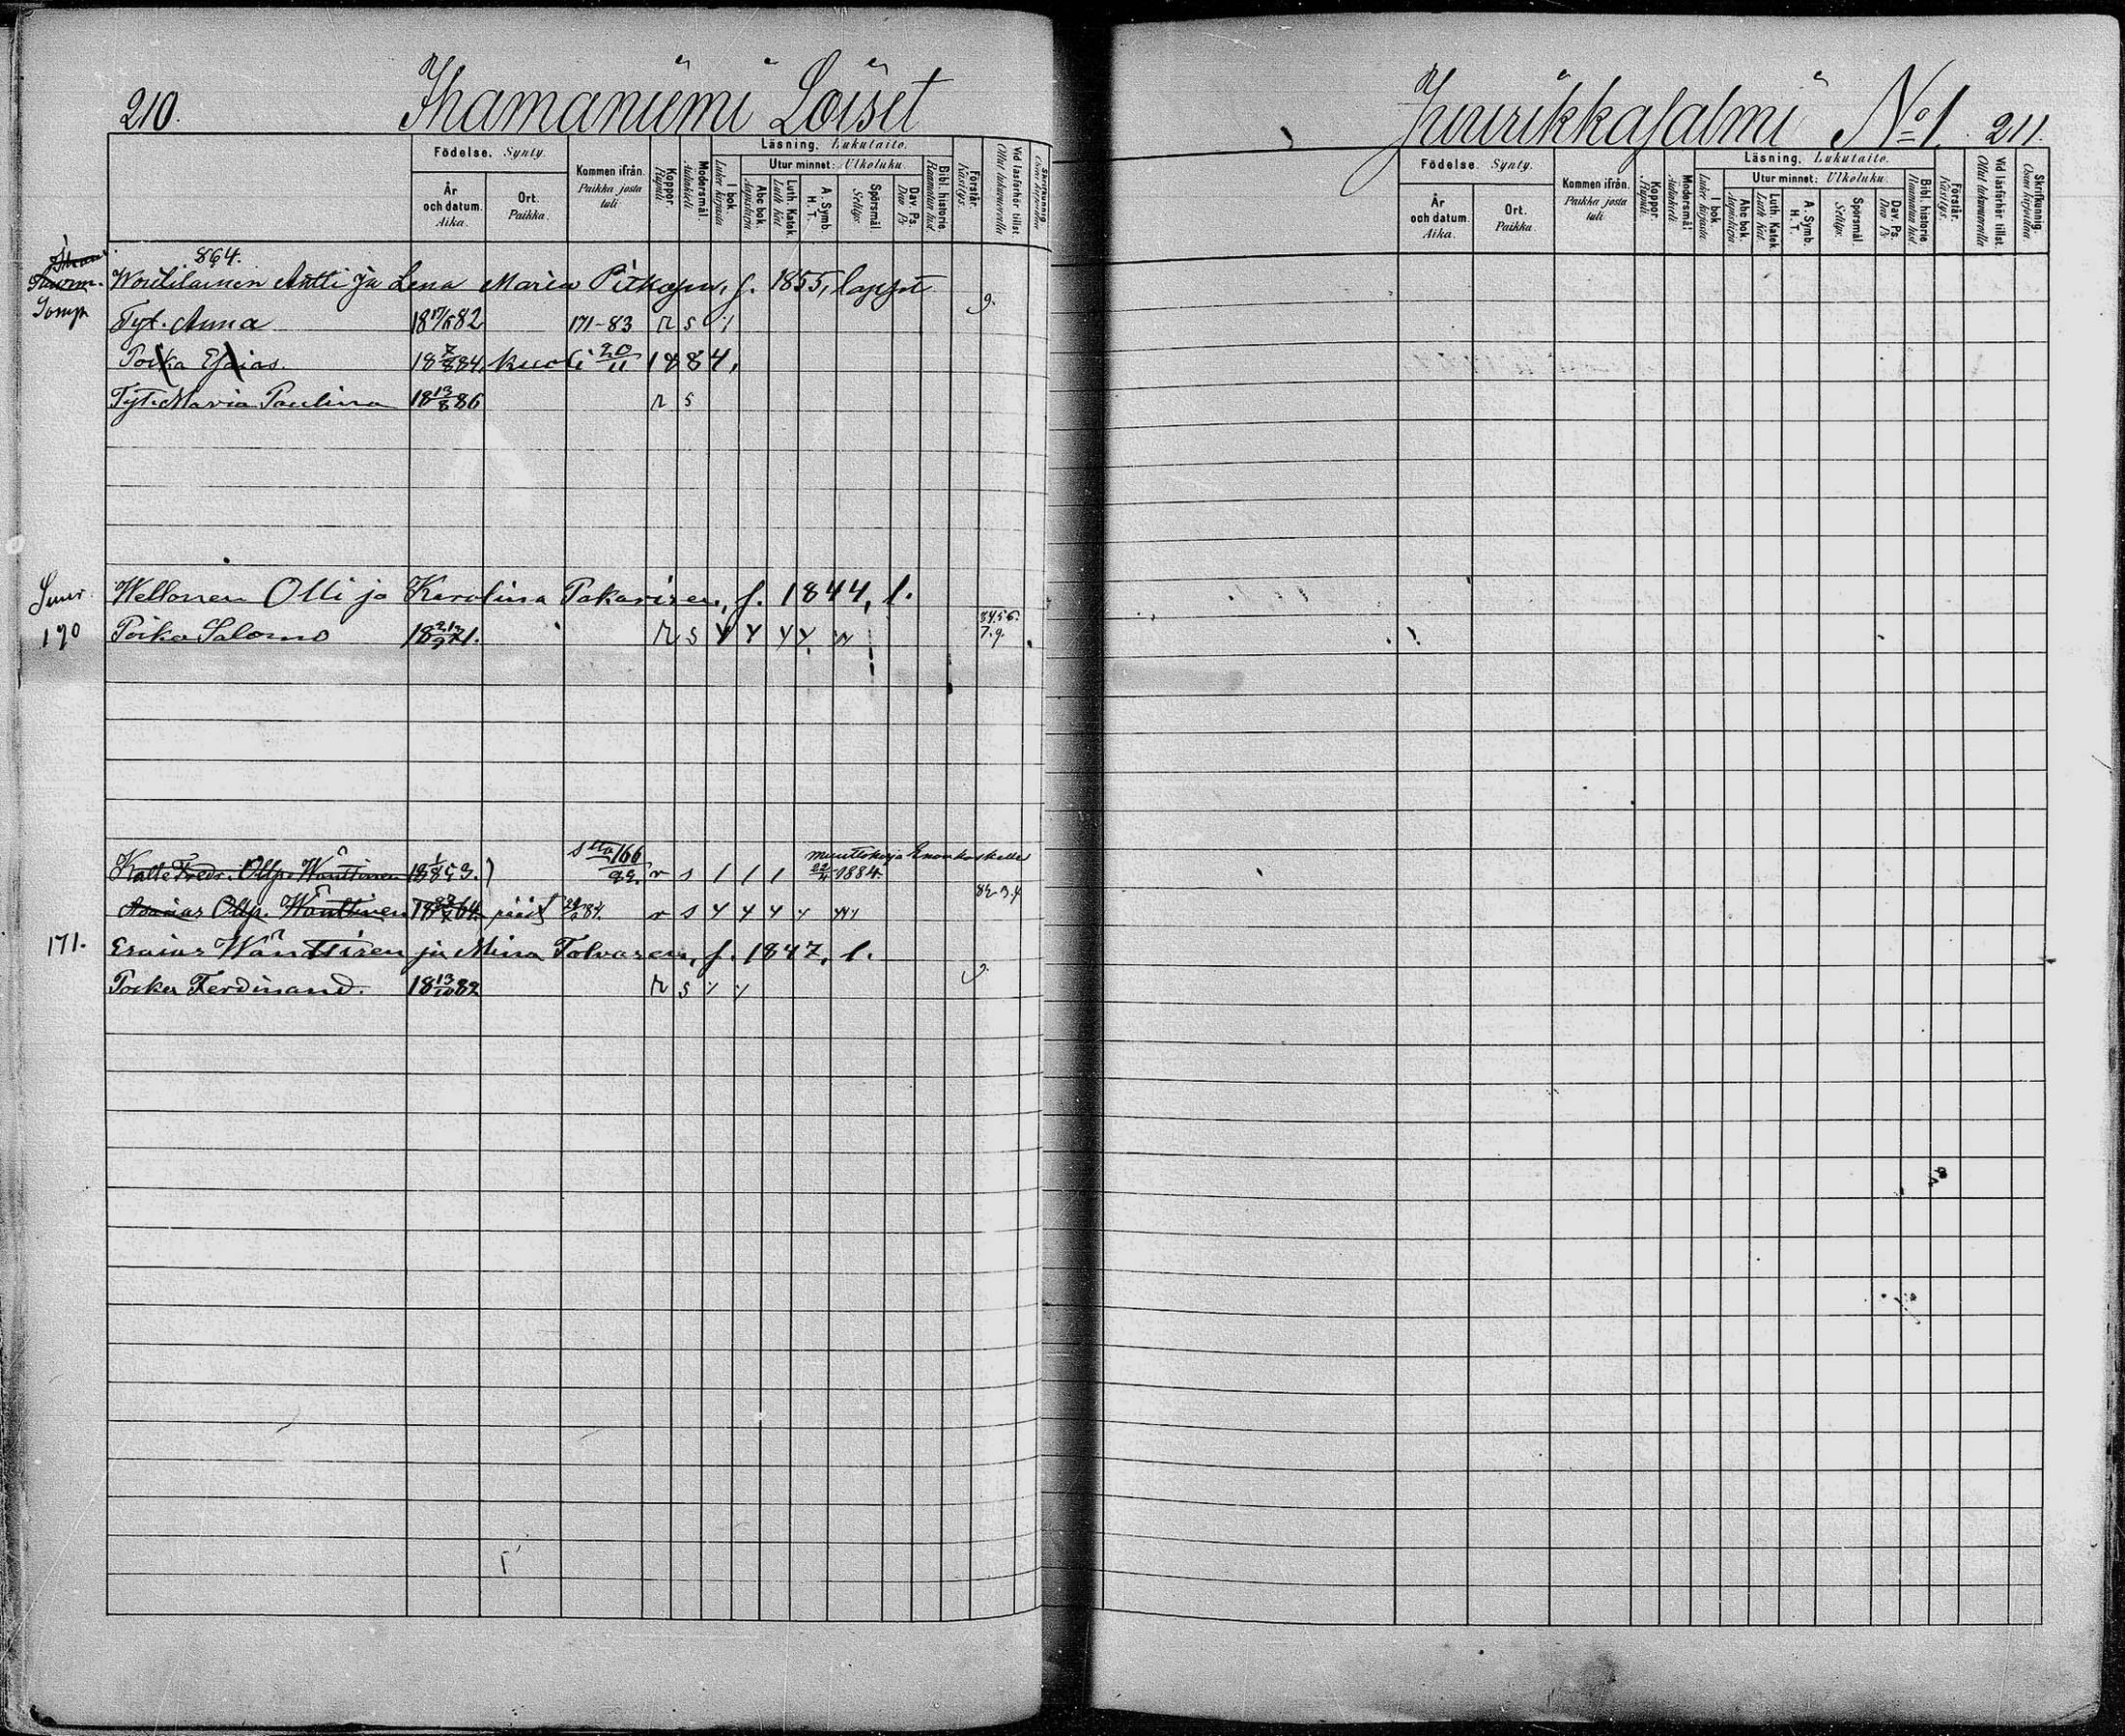 210. Ihamaniemi Loiset
Juurikkasalmi No 1. 211.
Födelse. Synty.
År och datum. Aika.
Ort. Paikka.
Kommen ifrån. Paikka josta tuli
Koppor. Rupuli.
Modersmål. Äidinkieli.
Läsning. Lukutaito.
I bok. Lukee kirjasta
Utur minnet: Ulkoluku.
Abc bok. Aapiskirja
Luth. Katek. Luth. kat.
A. Symb. H. T.
Spörsmål Selitys.
Dav. Ps. Dav. Ps.
Bibl. historie. Raamatun hist.
Förstår. Käsitys.
Vid läsförhör tillst. Ollut lukuvuorolla
Skrifkunnig. Osaa kirjoittaa.
864.
Antti ja Lena Maria Pitkäsen, f. 1855, lapset
Tyt. Anna 18 17/ 82 171-83 r s
9.
Poika Esaias. 18 84. kuoli 20/11 1884.
Tyt. Maria Paulina 18 13/8 86 r s
Wellonen Olli ja Karolina Pakarisen, f. 1844, l.
190 Poika Salomo 18 71. r s
3456.
7.9.
Kalle Fredr. Ollp. Wänttinen 18 53. s:ta 166 r s muuttokirja Enonkoskelle
1884.
Ollp. Wänttinen 18 64. r s
82 3.4
171. Esaias Wänttisen ja Miina Tolvasen, f. 1847, l.
Poika Ferdinand. 18 13/10 82 r s
9.
Födelse. Synty.
År och datum. Aika.
Ort. Paikka.
Kommen ifrån. Paikka josta tuli
Koppor. Rupuli.
Modersmål Äidinkieli.
Läsning. Lukutaito.
I bok. Lukee kirjasta
Utur minnet: Ulkoluku.
Abc bok. Aapiskirja
Luth. Katek. Luth. kat.
A. Symb. H. T.
Spörsmål Selitys.
Dav. Ps. Dav. Ps.
Bibl. historie Raamatun hist.
Förstår. Käsitys.
Vid läsförhör tillst. Ollut lukuvuorolla
Skrifkunnig. Osaa kirjoittaa.